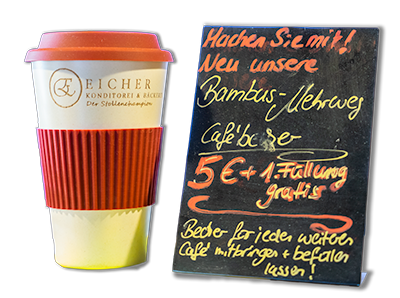 EICHER
KONDITOREI & BÄCKEREI
Der Stollenchampion
Machen Sie mit!
Neu unsere
Bambus-Mehrweg
Cafébecher
5€ + 1. Füllung
gratis
Becher für jeden weiteren
Café mitbringen + befüllen
lassen!